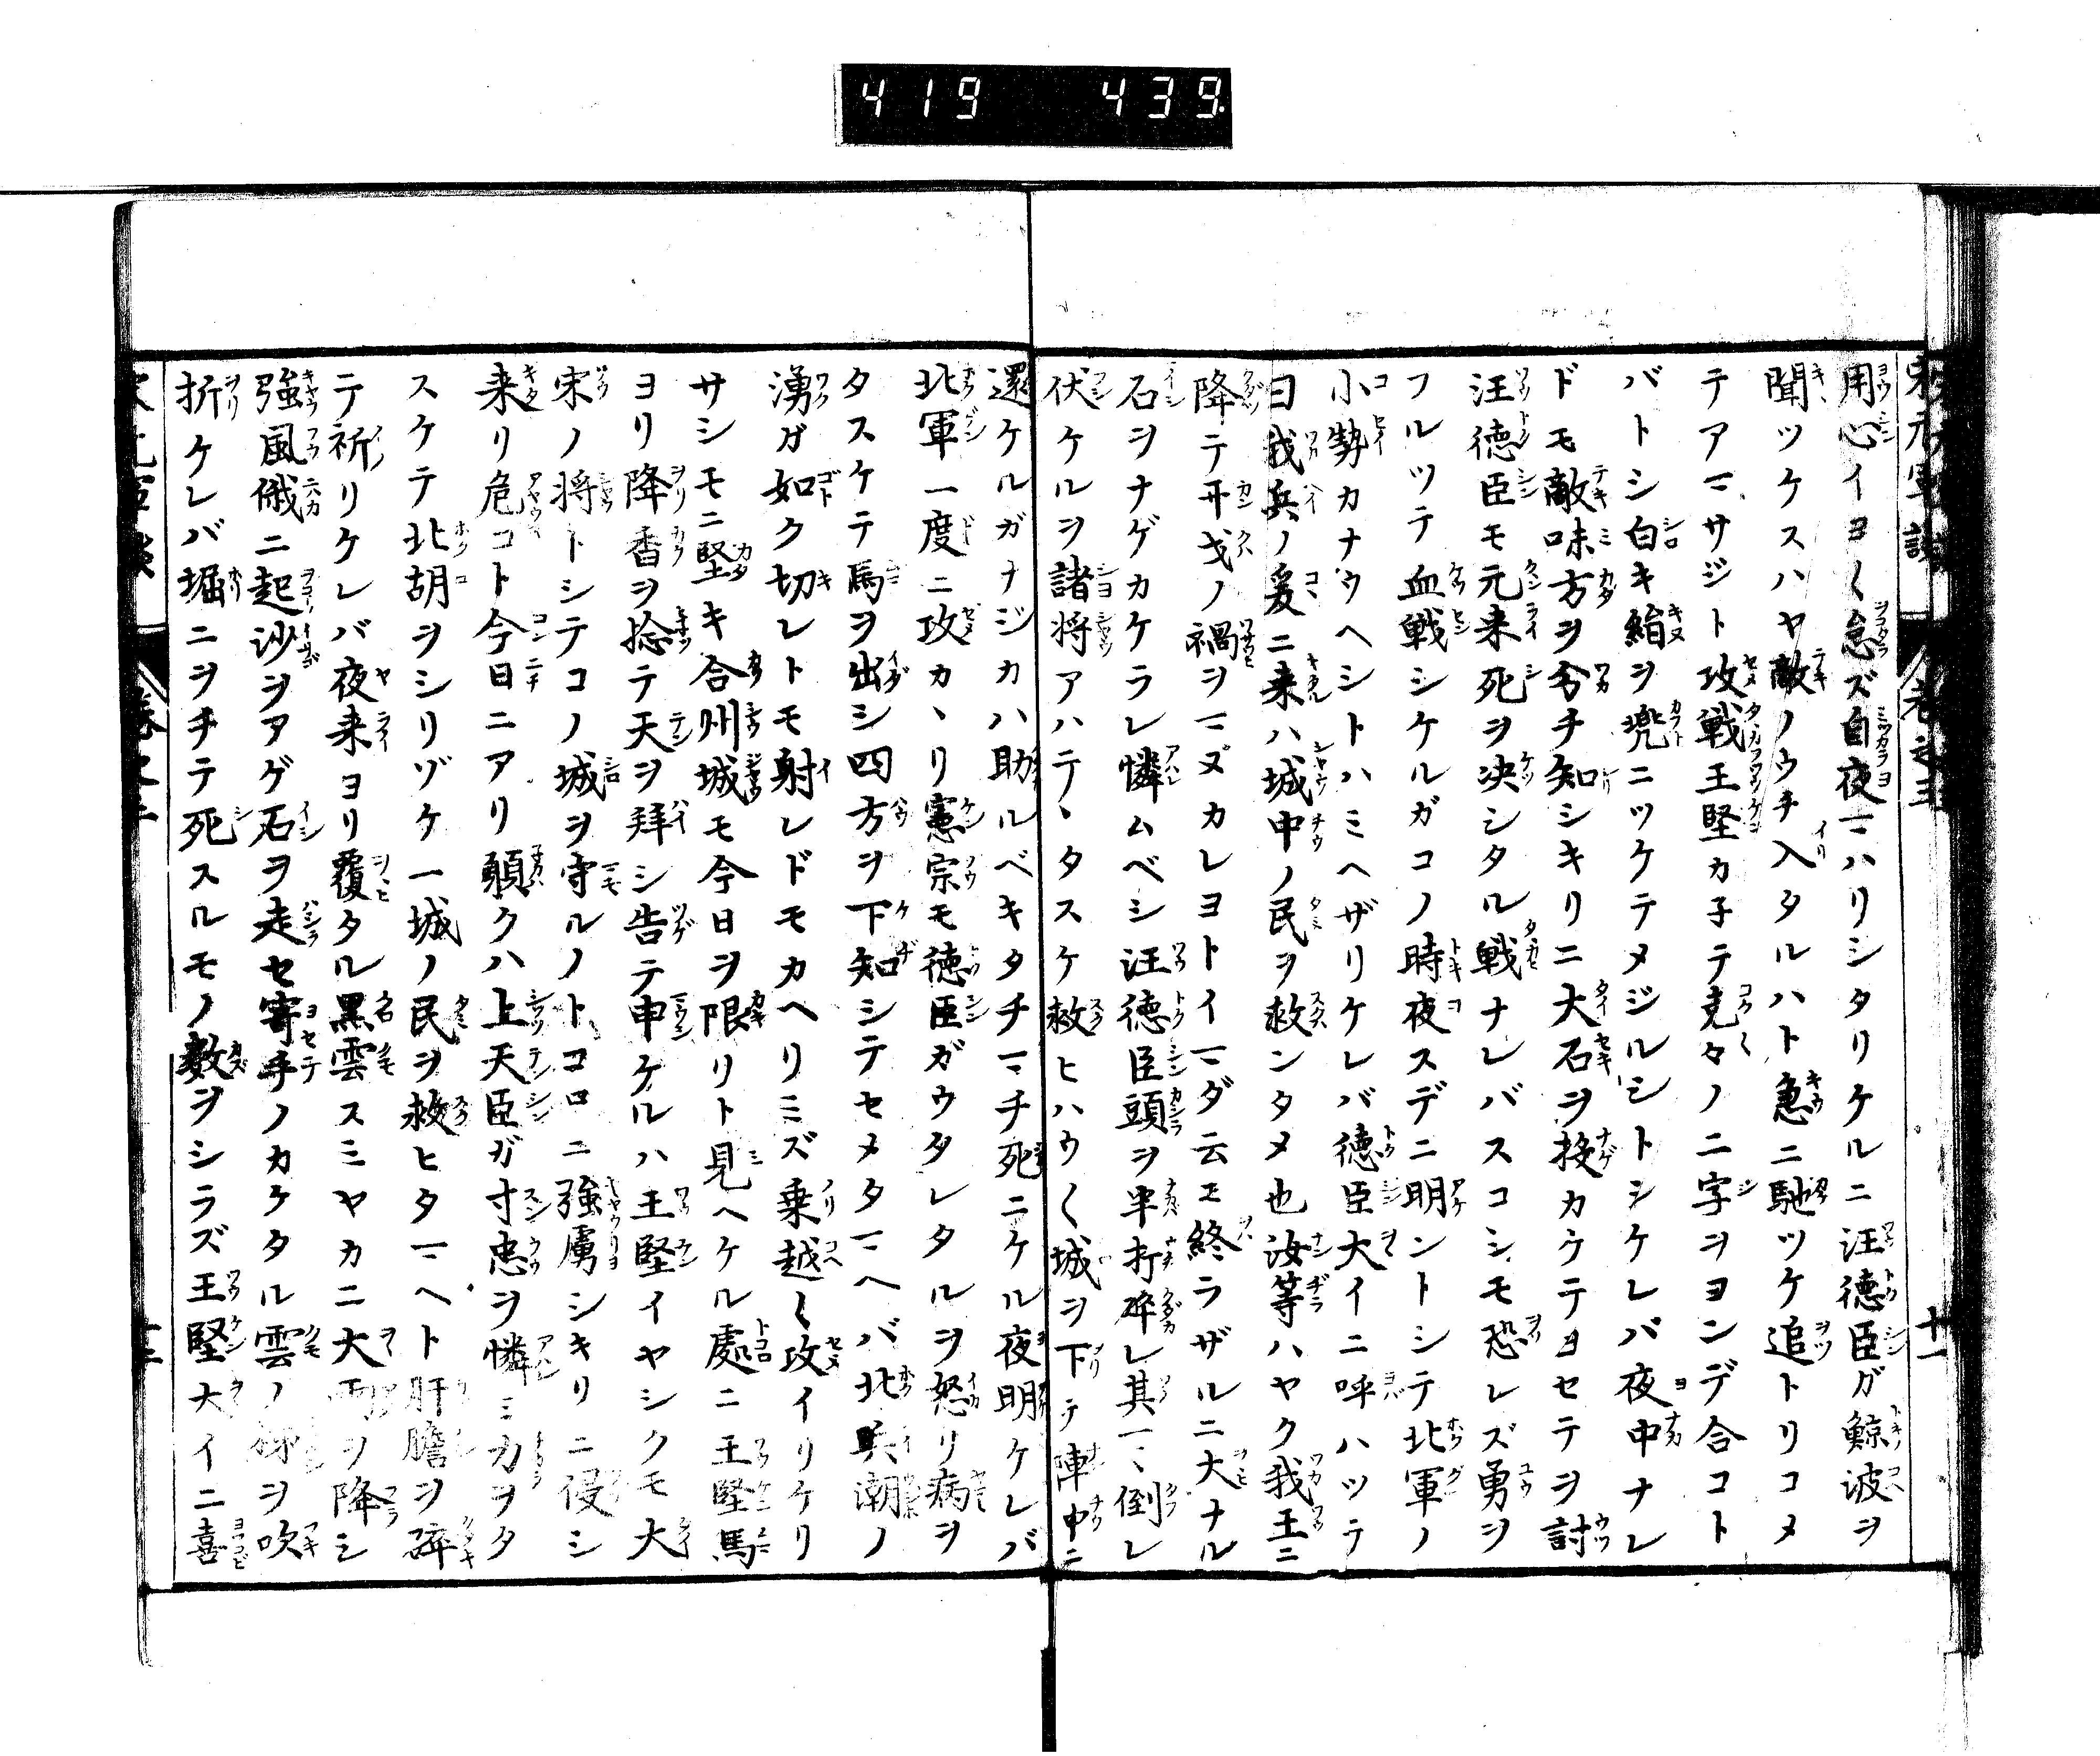 419 439
用心イヨ〱怠ズ自夜マハリシタリケルニ汪徳臣ガ鯨波ヲ
聞ツケスハヤ敵ノウチ入タルハト急ニ馳ツケ追トリコメ
テアマサジト攻戦王堅カ子テ克々ノ二字ヲヨンデ合コト
バトシ白キ絹ヲ兜ニツケテメジルシトシケレバ夜中ナレ
ドモ敵味方ヲ分チ知シキリニ大石ヲ投カケテヨセテヲ討
汪徳臣モ元来死ヲ决シタル戦ナレバスコシモ恐レズ勇ヲ
フルツテ血戦シケルガコノ時夜スデニ明ントシテ北軍ノ
小勢カナウヘシトハミヘザリケレバ徳臣大イニ呼ハツテ
曰我兵ノ爰ニ来ハ城中ノ民ヲ救ンタメ也汝等ハヤク我王ニ
降テ干戈ノ禍ヲマヌカレヨトイマダ云エ終ラザルニ大ナル
石ヲナゲカケラレ憐ムベシ汪徳臣頭ヲ半打碎レ其マヽ倒レ
伏ケルヲ諸将アハテヽタスケ救ヒハウ〱城ヲ下テ陣中ニ
還ケルガナジカハ助ルベキタチマチ死ニケル夜明ケレバ
北軍一度ニ攻カヽリ憲宗モ徳臣ガウタレタルヲ怒リ病ヲ
タスケテ馬ヲ出シ四方ヲ下知シテセメタマヘバ北兵潮ノ
湧ガ如ク切レトモ射レドモカヘリミズ乗越〱攻イリケリ
サシモニ堅キ合州城モ今日ヲ限リト見ヘケル處ニ王堅馬
ヨリ降香ヲ捻テ天ヲ拜シ告テ申ケルハ王堅イヤシクモ大
宋ノ将トシテコノ城ヲ守ルノトコロニ強虜シキリニ侵シ
来リ危コト今日ニアリ願クハ上天臣ガ寸忠ヲ憐ミ力ヲタ
スケテ北胡ヲシリゾケ一城ノ民ヲ救ヒタマヘト肝膽ヲ碎
テ祈リケレバ夜来ヨリ覆タル黒雲スミヤカニ大雨ヲ降シ
強風俄ニ起沙ヲアゲ石ヲ走セ寄手ノカケタル雲ノ梯ヲ吹
折ケレバ堀ニヲチテ死スルモノ数ヲシラズ王堅大イニ喜